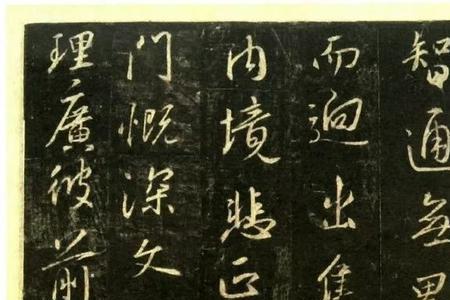 智通無累
而迥出隻
内境悲正
門慨深文
理廣彼前